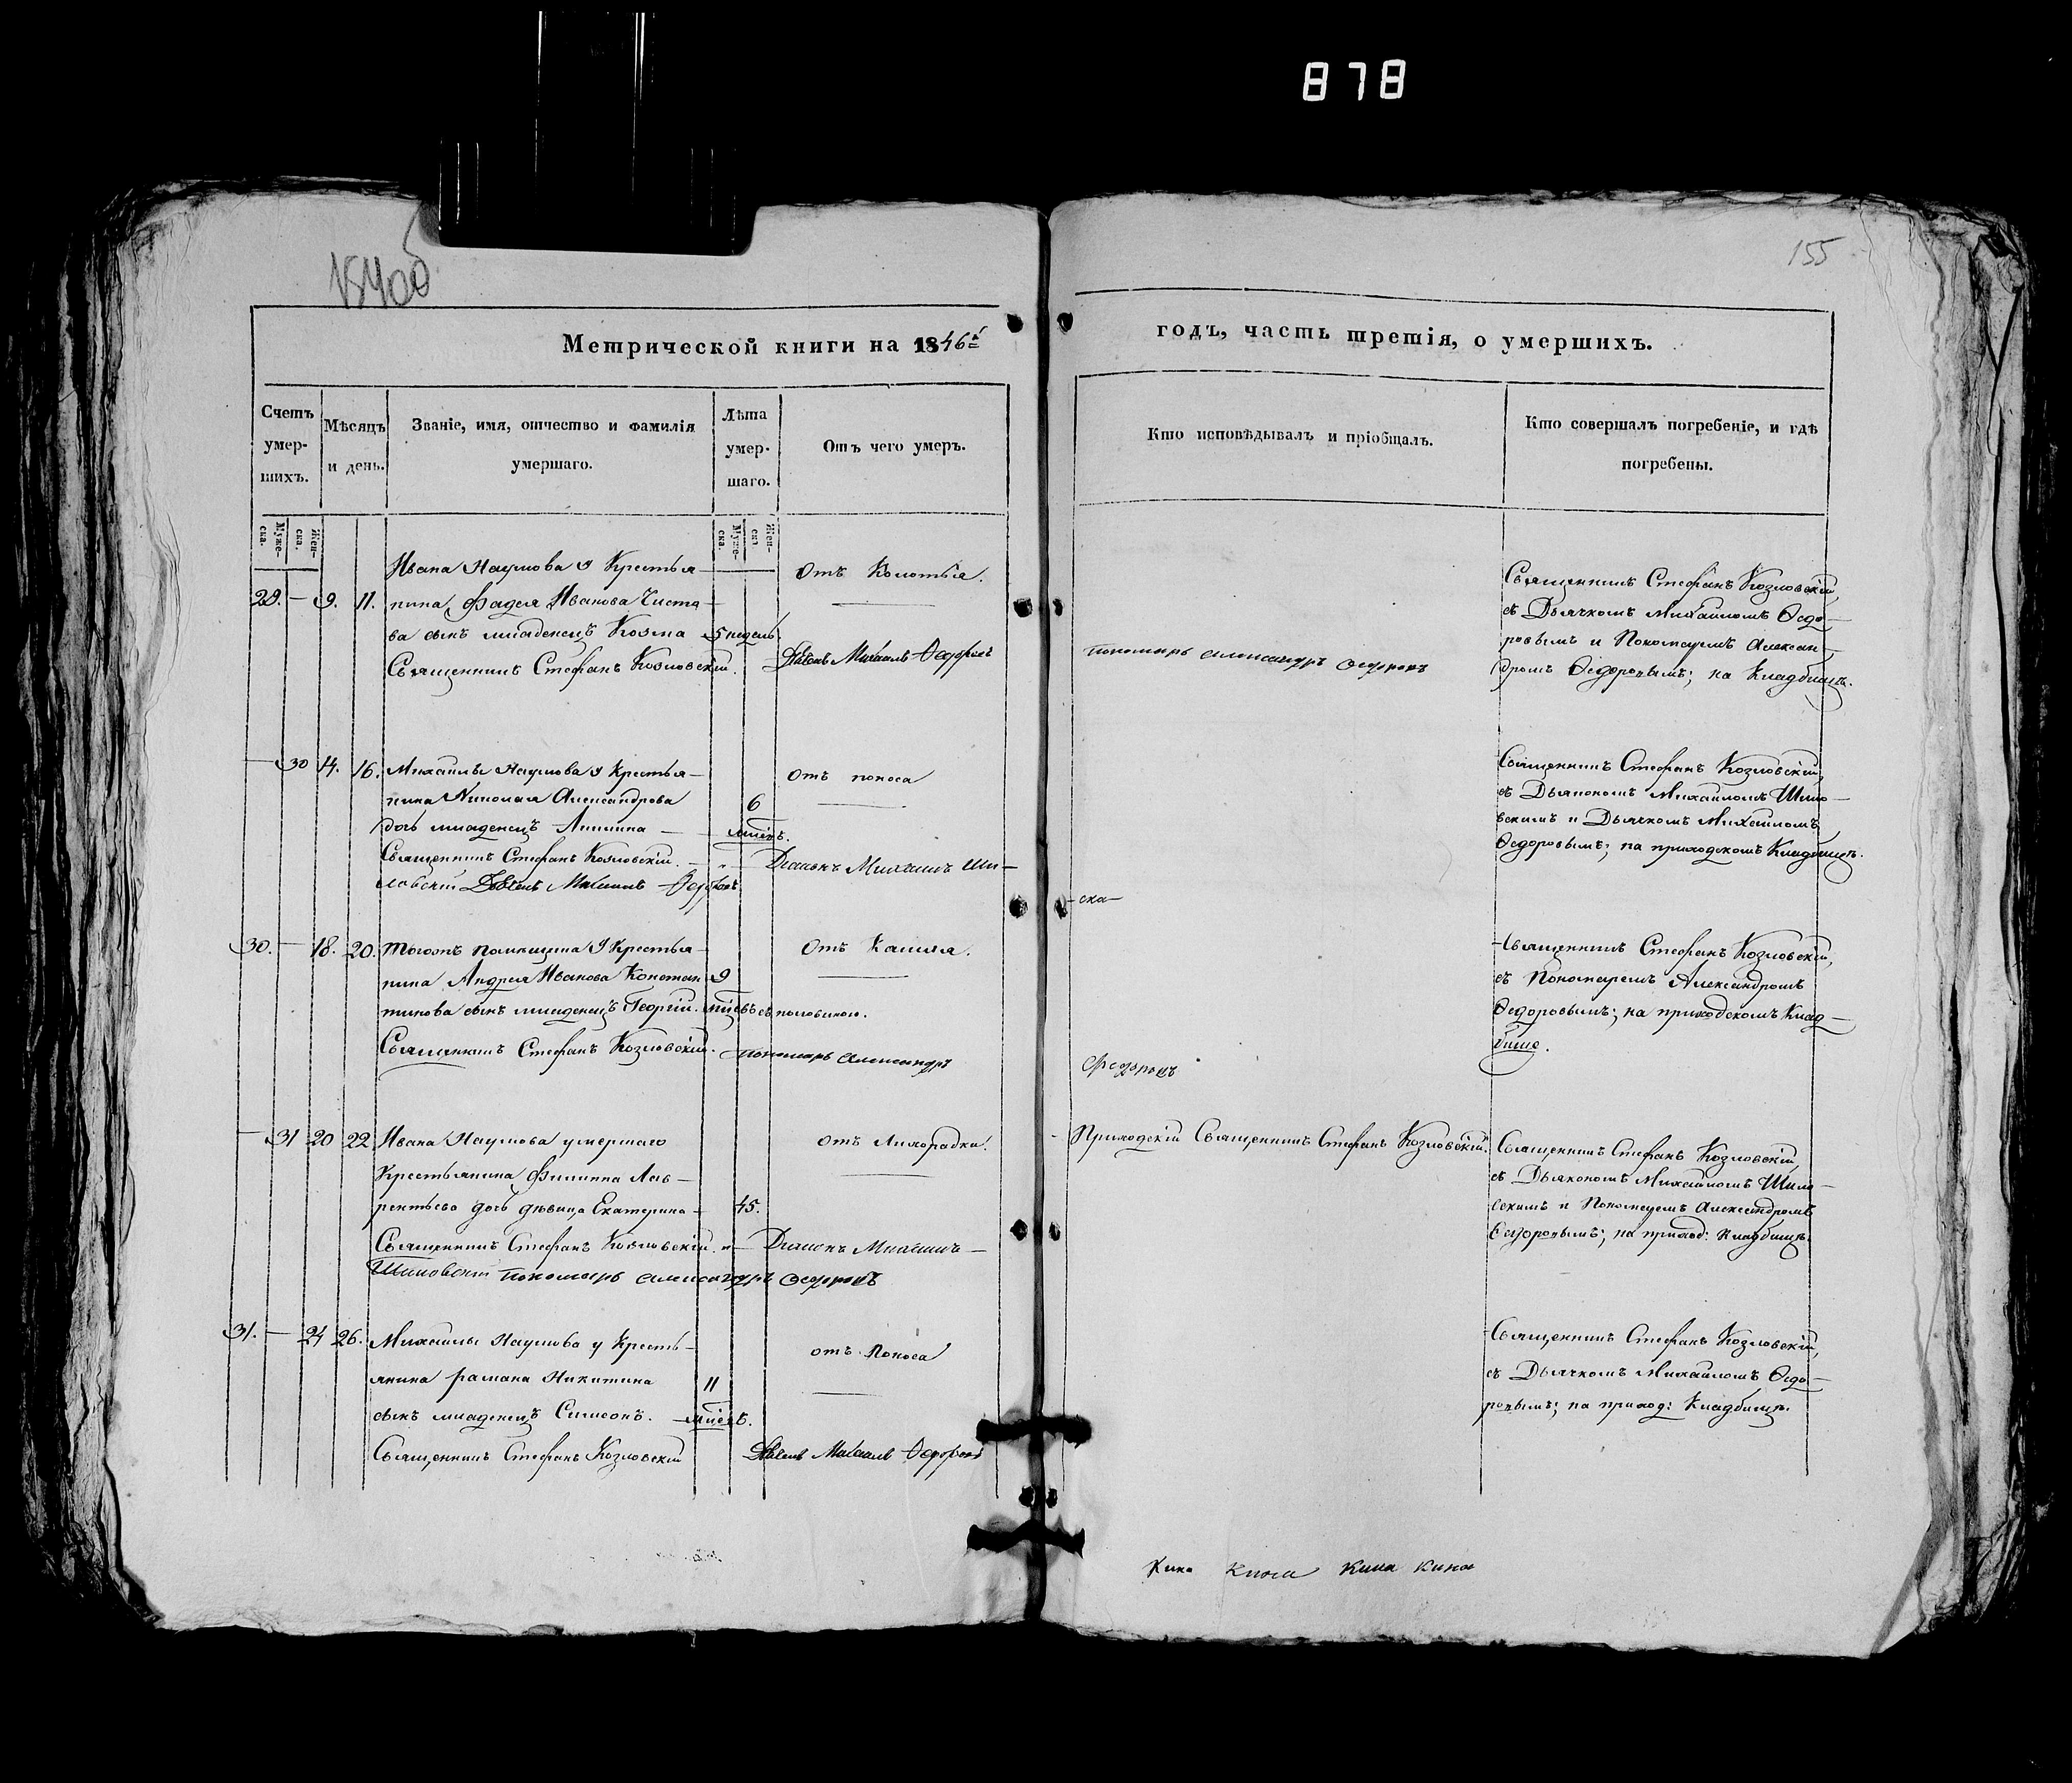 878
154об
155
Метрической книги на 1846й
годъ, часть третія, о умершихъ.
Счетъ умер-шихъ.
Мѣсяцъ и день.
Званіе, имя, отчество и фамилія умершаго.
Лѣта умер-шаго.
Отъ чего умеръ.
Кто исповѣдывалъ и пріобщалъ.
Кто совершалъ погребеніе, и гдѣ погребены.
Муже-ска.
Жен-ска.
Муже-ска.
Жен-ска
Ивана Наумова у Крестья-
29. — 9. 11. нина Фадея Иванова Чиста-
ва сынъ младенецъ Козма 5 недель.
Священникъ Стефанъ Козловскій.
Отъ Колотья.
Дьячекъ Михаилъ Ѳедоровъ
пономарь Александръ Ѳедоровъ
Священникъ Стефанъ Козловскій,
съ Дьячкомъ Михаиломъ Ѳедо-
ровымъ и Пономаремъ Алексан-
дромъ Ѳедоровымъ; на Кладбищѣ.
— 30 14. 16. Михаилы Наумова у Крестья-
нина Николая Александрова
дочь младенецъ — 6
мѣсецъ.
Священникъ Стефанъ Козловскій. —
ловскій Дьячекъ Михаилъ Ѳедоровъ
Отъ поноса
Діаконъ Михаилъ Ши-
ска—
Священникъ Стефанъ Козловскій,
съ Дьякономъ Михаиломъ Шило-
вскимъ и Дьячкомъ Михаиломъ
Ѳедоровымъ; на приходскомъ Кладбищѣ.
30. — 18. 20. Тогожъ помѣщика у Крестья-
нина Андрея Иванова Констан- 9
тинова сынъ младенецъ Георгій. мѣсцовъ съ половиною.
Священникъ Стефанъ Козловскій.
Отъ Кашля.
пономарь Александръ
Ѳедоровъ
Священникъ Стефанъ Козловскій,
съ Пономаремъ Александромъ
Ѳедоровымъ; на приходскомъ Клад-
бище.
— 31 20 22. Ивана Наумова умершаго
Крестьянина Филиппа Лав-
рентьева дочь дѣвица Екатерина — 45.
Священникъ Стефанъ Козловскій. —
Шиловскій пономарь Александръ Ѳедоровъ
отъ Лихорадки.
Діаконъ Михаилъ —
Приходскій Священникъ Стефанъ Козловскій.
Священникъ Стефанъ Козловскій,
съ Дьякономъ Михаиломъ Шило-
вскимъ и Пономаремъ Александромъ
Ѳедоровымъ; на приход: Кладбищѣ.
31. — 24 26. Михаилы Наумова у Кресть-
янина Рамана Никитина 11
сынъ младенецъ Симеонъ. — мѣсецъ.
Священникъ Стефанъ Козловскій
отъ Поноса
Дьячекъ Михаилъ Ѳедоровъ
Священникъ Стефанъ Козловскій,
съ Дьячкомъ Михаиломъ Ѳедо-
ровымъ; на приход: Кладбищѣ.